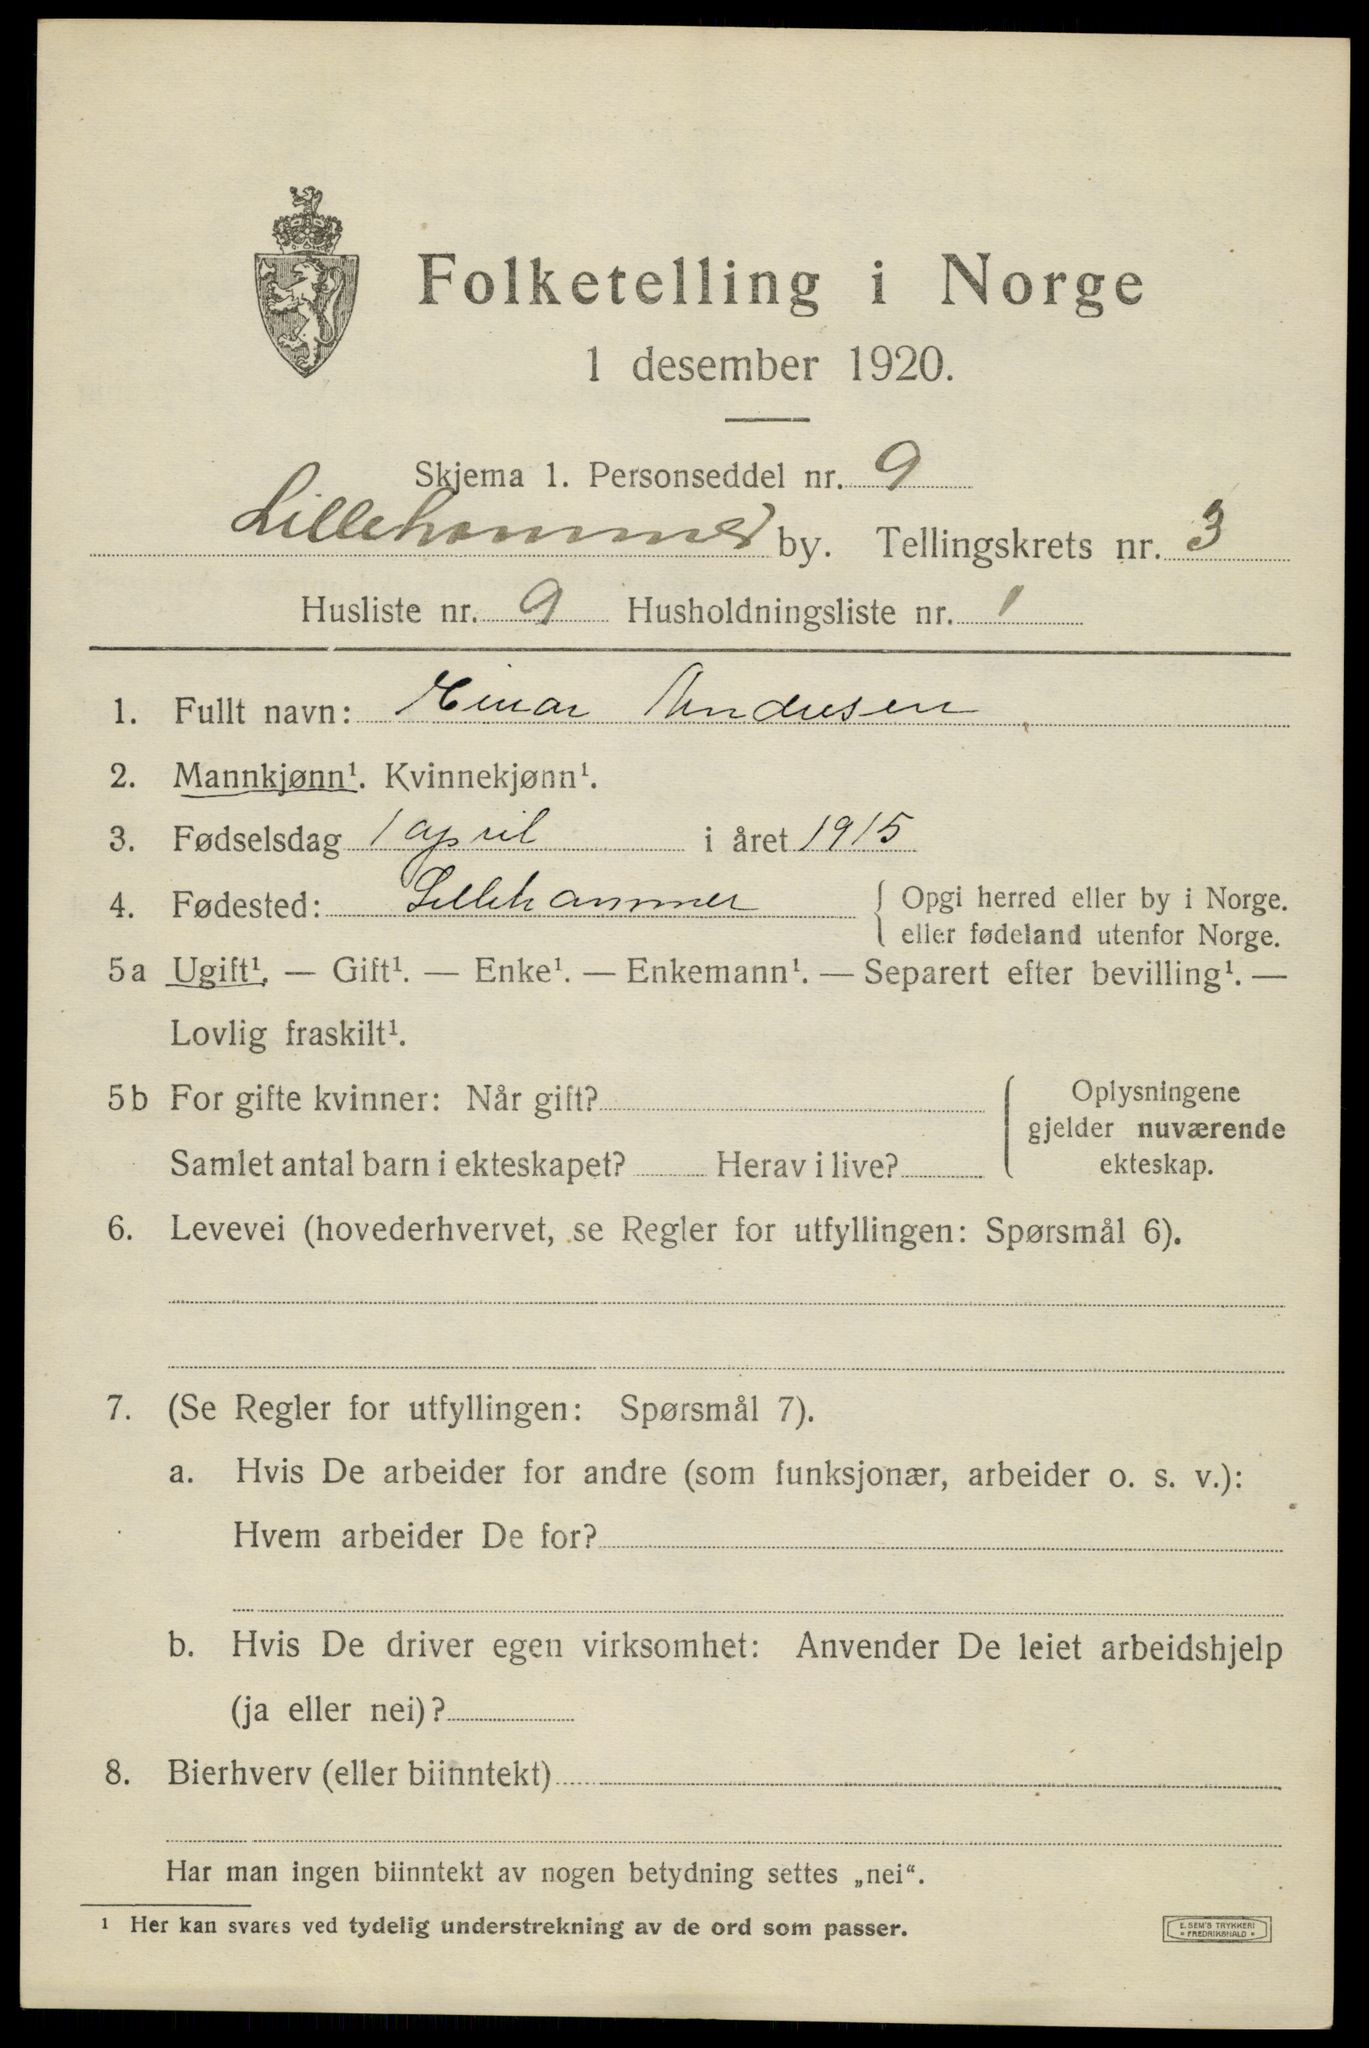 Folketelling i Norge
1 desember 1920.
Skjema 1. Personseddel nr. 9
Lillehammer by. Tellingskrets nr. 3
Husliste nr. 9 Husholdningsliste nr. 1
1. Fullt navn: Einar Andresen
2. Mannkjønn¹. Kvinnekjønn¹.
3. Fødselsdag 1 april i året 1915
4. Fødested: Lillehammer { Opgi herred eller by i Norge.
eller fødeland utenfor Norge.
5a Ugift¹. — Gift¹. — Enke¹. — Enkemann¹. — Separert efter bevilling¹. —
Lovlig fraskilt¹.
5b For gifte kvinner: Når gift? Oplysningene
gjelder nuværende
Samlet antal barn i ekteskapet? Herav i live? ekteskap.
6. Levevei (hovederhvervet, se Regler for utfyllingen: Spørsmål 6).
7. (Se Regler for utfyllingen: Spørsmål 7).
a. Hvis De arbeider for andre (som funksjonær, arbeider o. s. v.):
Hvem arbeider De for?
b. Hvis De driver egen virksomhet: Anvender De leiet arbeidshjelp
(ja eller nei)?
8. Bierhverv (eller biinntekt)
Har man ingen biinntekt av nogen betydning settes „nei“.
¹ Her kan svares ved tydelig understrekning av de ord som passer.
E. SEM'S TRYKKERI
* FREDRIKSHALD *